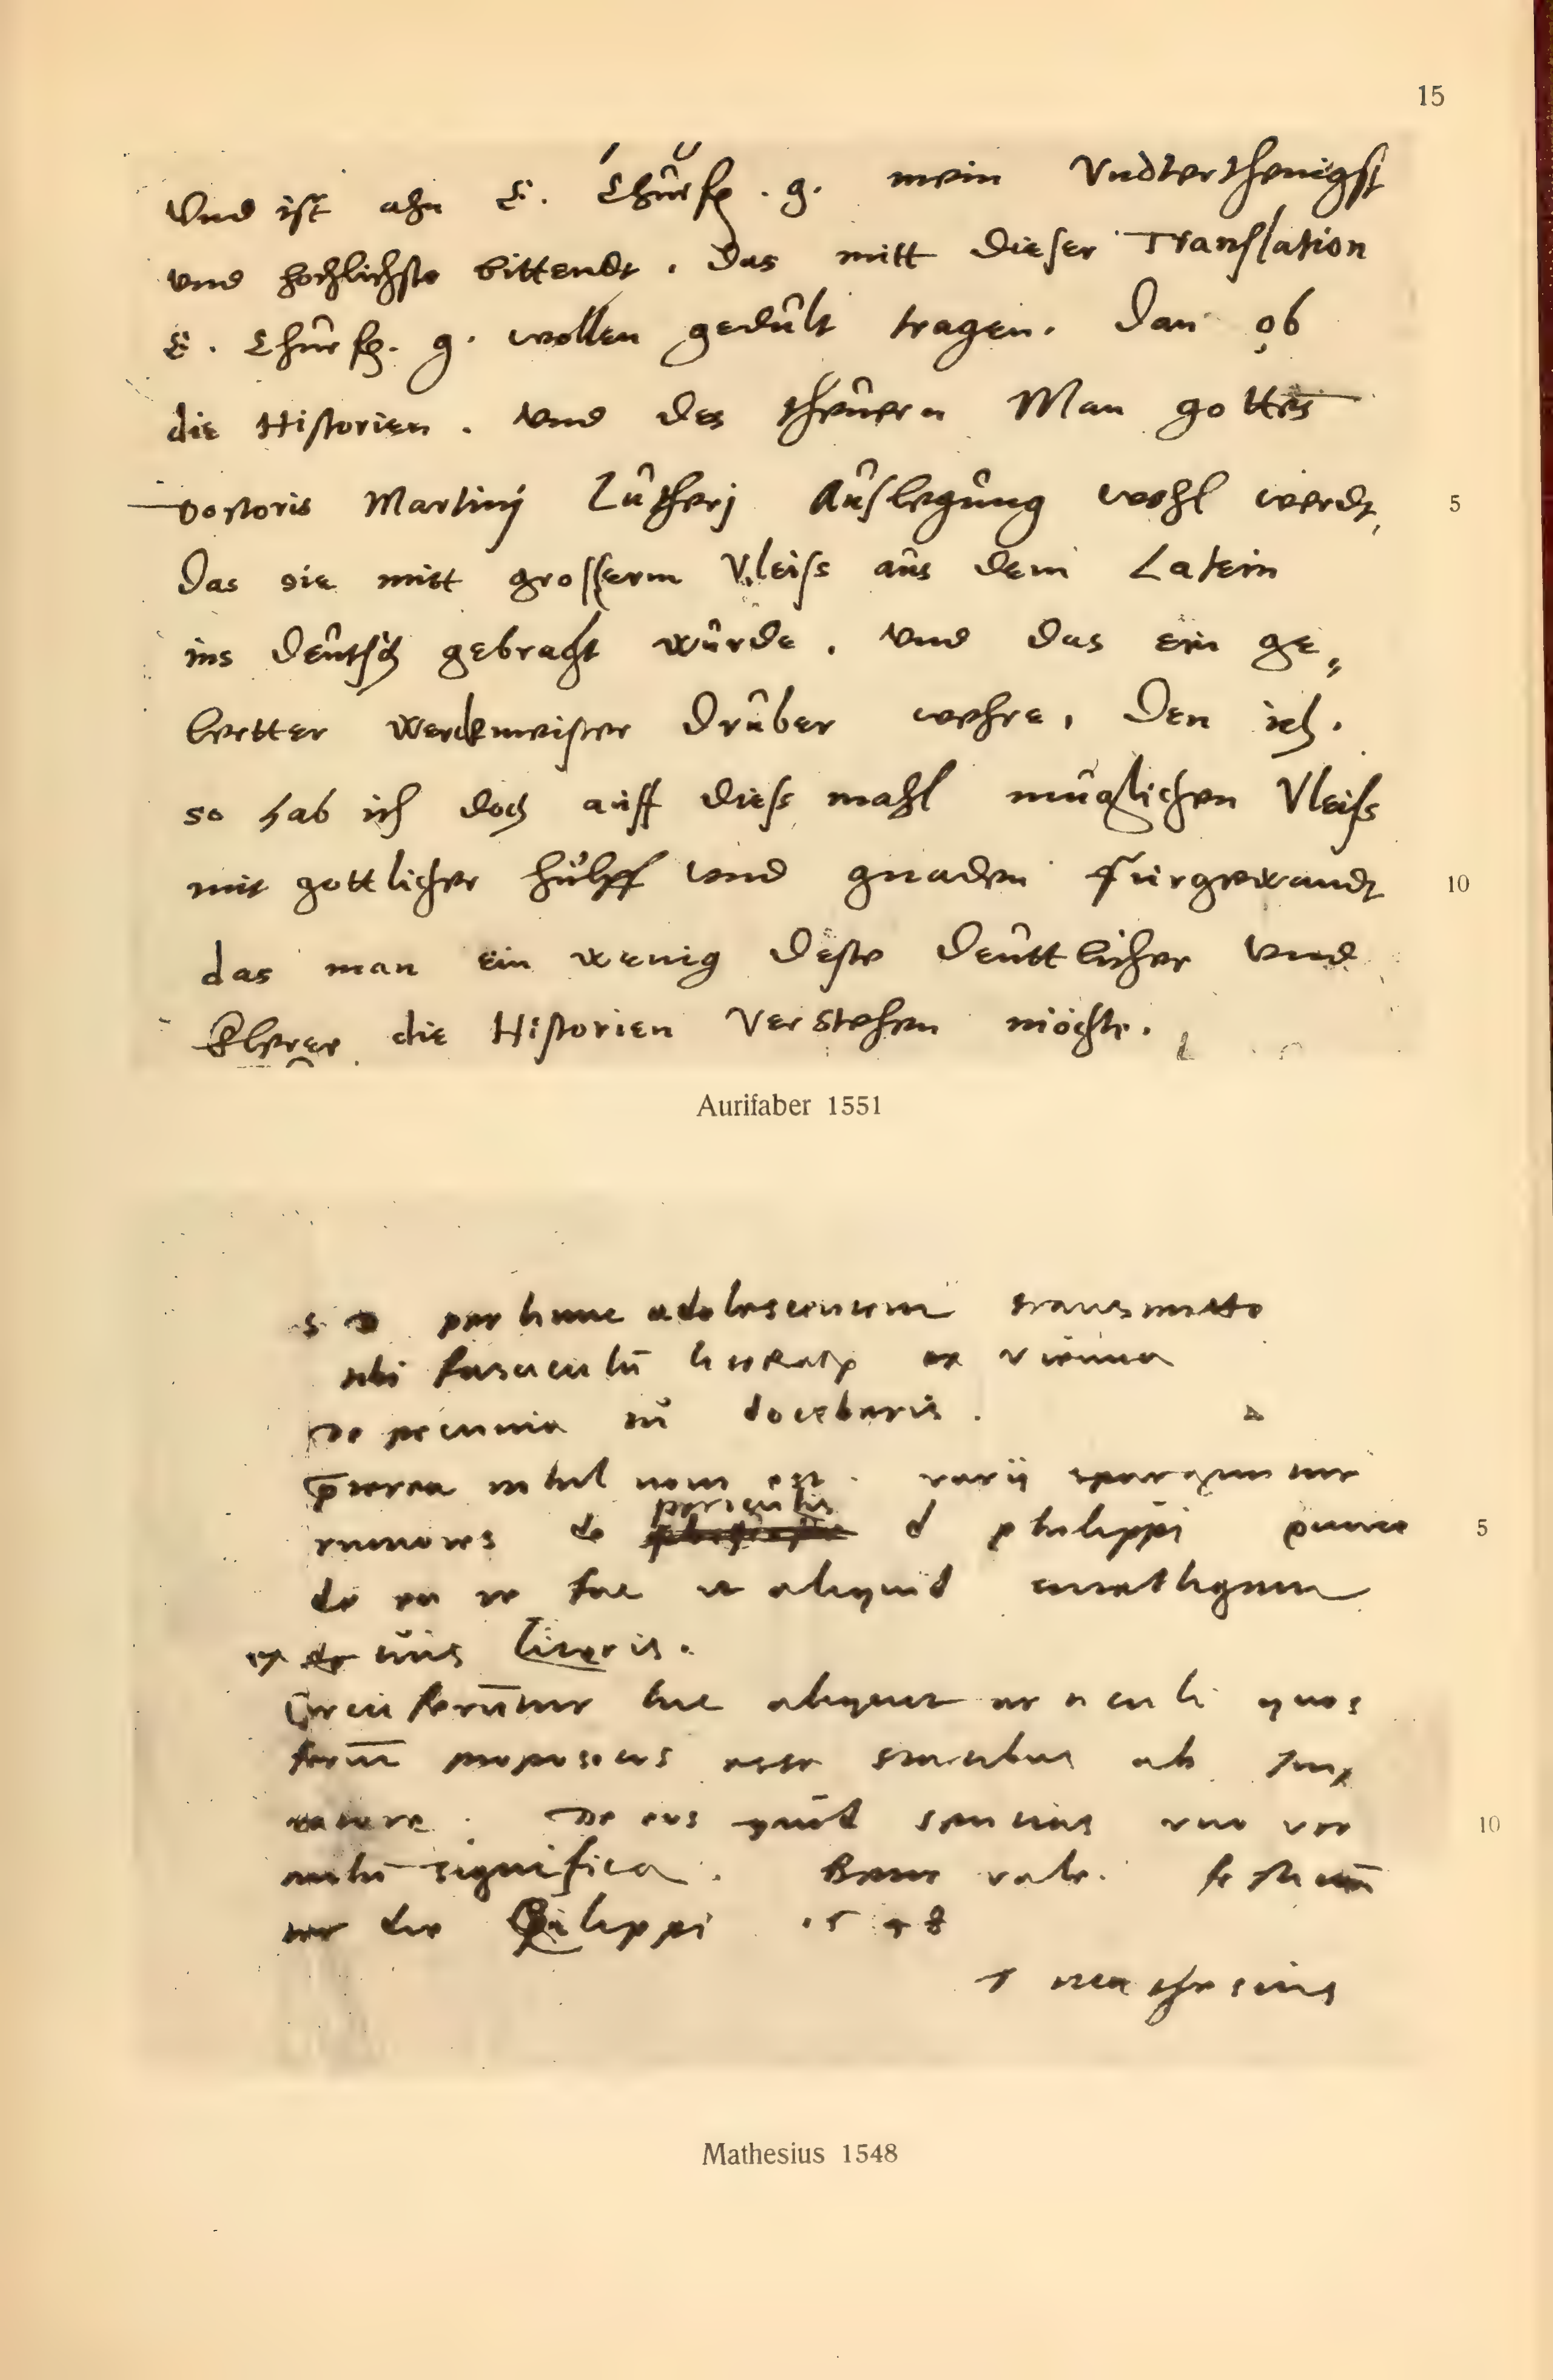 15
Vnd ist ahn E. Churfl. g. mein Vndterthenigst
vnd hochlichste bittendt. Das mitt dieser Translation
E. Churfl. g. wollen gedult tragen. Dan ob
die Historien. vnd des theuern Man gottes
Doctoris Martinj Lutherj Auslegung wohl werdt, 5
Das sie mitt grosserm Vleiss aus dem Latein
ins Deutsch gebracht wurde. vnd das ein ge,
lertter werckmeister Druber wehre, Den ich.
so hab ich doch auff diess mahl muglichen Vleiss
mit gottlicher hulff vnd gnaden furgewandt 10
das man ein wenig deste deuttlicher vnd
klerer die Historien Verstehen möchte.
Aurifaber 1551
S D per hunc adolescentem transmitto
tibi fasciculū literarum ex vienna
De pecunia docebaris.
p̄terea nihil novi est. varii sparguntur
rumores de periculis d philippi 5
de ea re fac vt aliquid intelligam
ex tuis literis.
Circumferūtur huc aliquot articuli quos
ferūt propositos esse statibus ab Imp
De eis quid sentias
mihi significa. Bene vale.
die Philippi 1548
Mathesius
10
Mathesius 1548